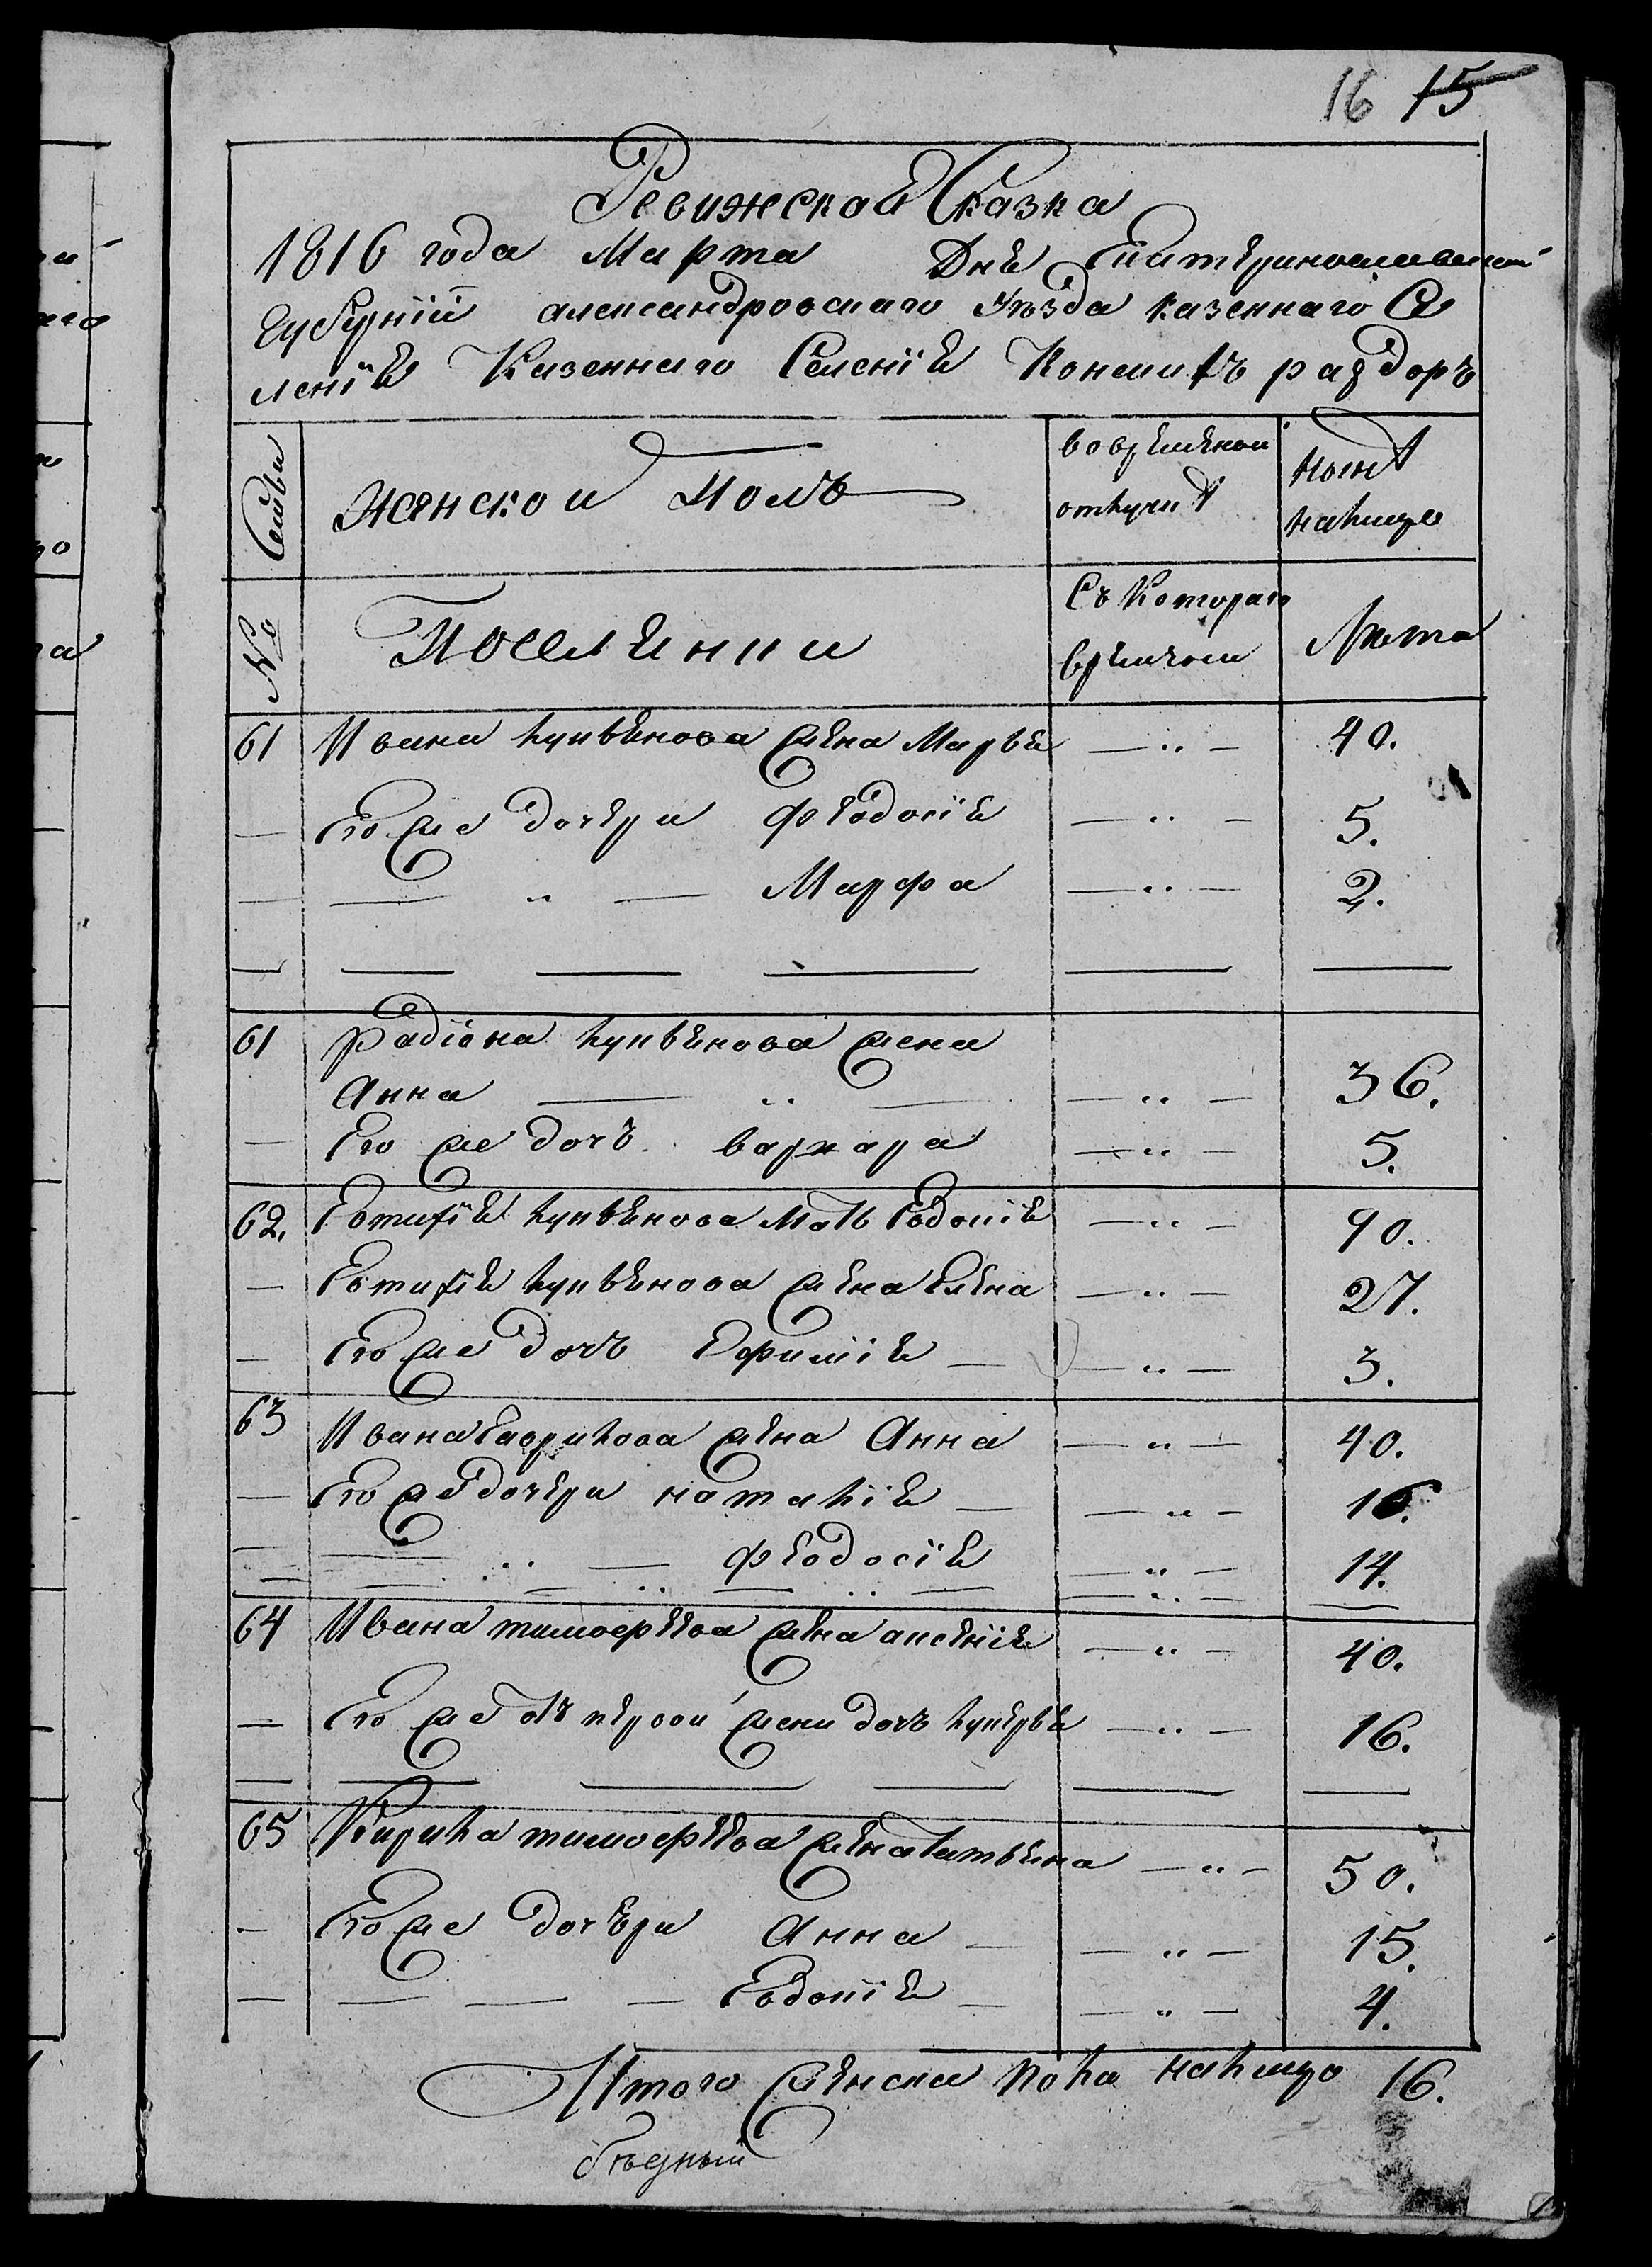 16 15
Ревижская Сказка
1816 года Марта Дня Екатеринославской
Губернїи александровскаго уѣзда казеннаго Се
ленїя Казеннаго Селенїя Конскихъ раздоръ
Семьи
женской полъ
во временной
отлучкѣ
нынѣ
налицо
№
Поселянки
Съ котораго
времени
Лѣта
61 Ивана лукьянова жена Марья — " — 40.
— Его же дочери феодосїя — " — 5.
— — " — Марфа — " — 2.
61 Радїона лукьянова жена
Анна — " — — " — 36.
— Его же дочь варвара — " — 5.
62. Евтифїя лукьянова мать Евдокїя — " — 90.
— Евтифїя лукьянова жена Елена — " — 27.
— Его же дочь Ефимїя — — " — 3.
63 Ивана Гаврилова жена Анна — " — 40.
— Его же дочери наталїя — — " — 16.
— — " — феодосїя — " — 14.
64 Ивана тимофеева жена аксенїя — " — 40.
— Его же отъ первой жени дочь лукерья — " — 16.
65 Кирила тимофеева жена татьяна — " — 50.
— Его же дочери Анна — — " — 15.
— — — — Евдокїя — — " — 4.
Итого женска пола налицо 16.